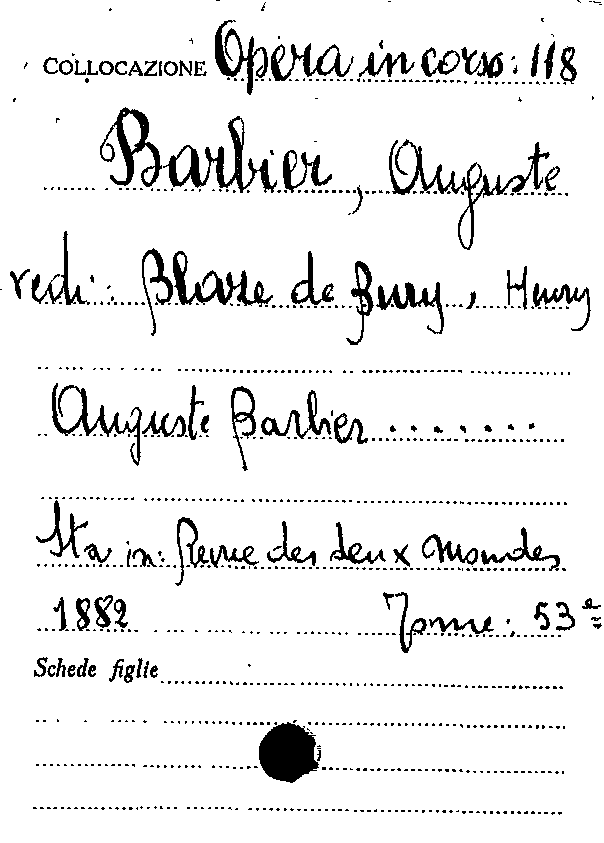 COLLOCAZIONE Opera in corso: 118
Barbier, Auguste
vedi: Blaze de Bury, Henry
Auguste Barbier ........
Sta in: Revue des deux Mondes
1882 Tome: 53e
Schede figlie